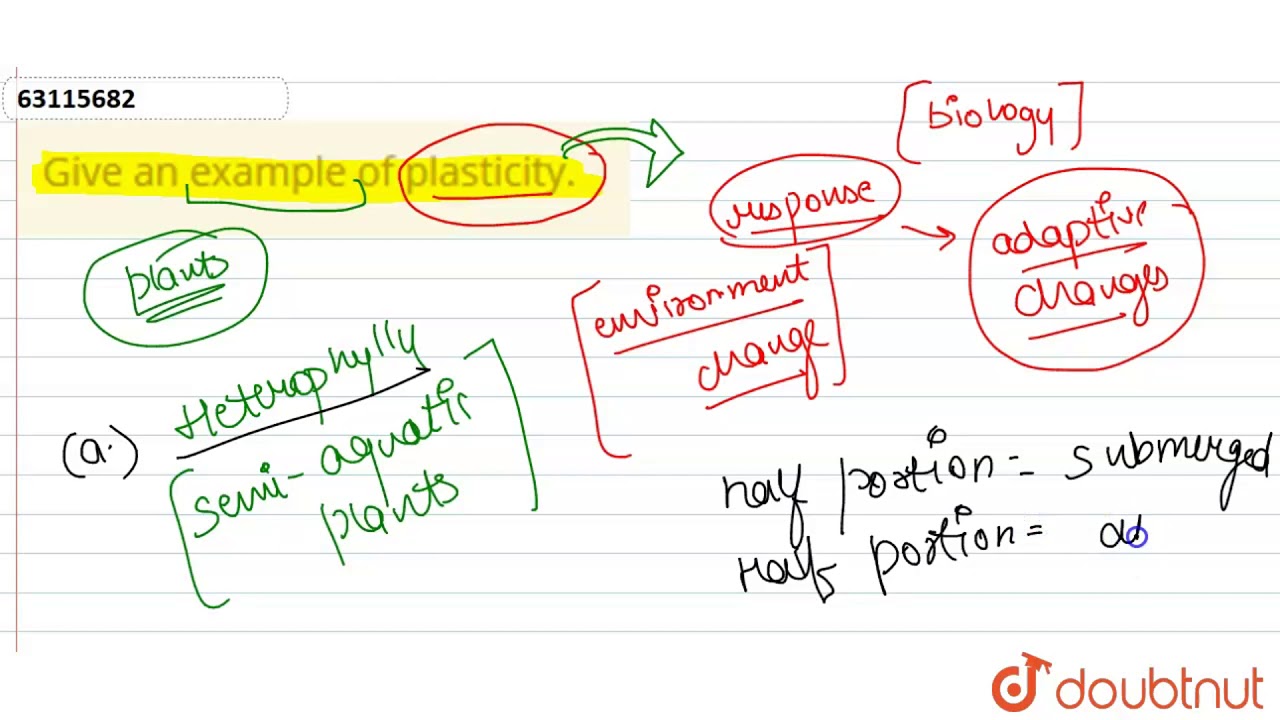 63115682
Give an example of plasticity.
[biology]
response
adaptive
changes
plants
environment
change
Heterophylly
(a.)
semi-aquatic
plants
half portion = submerged
half portion =
doubtnut